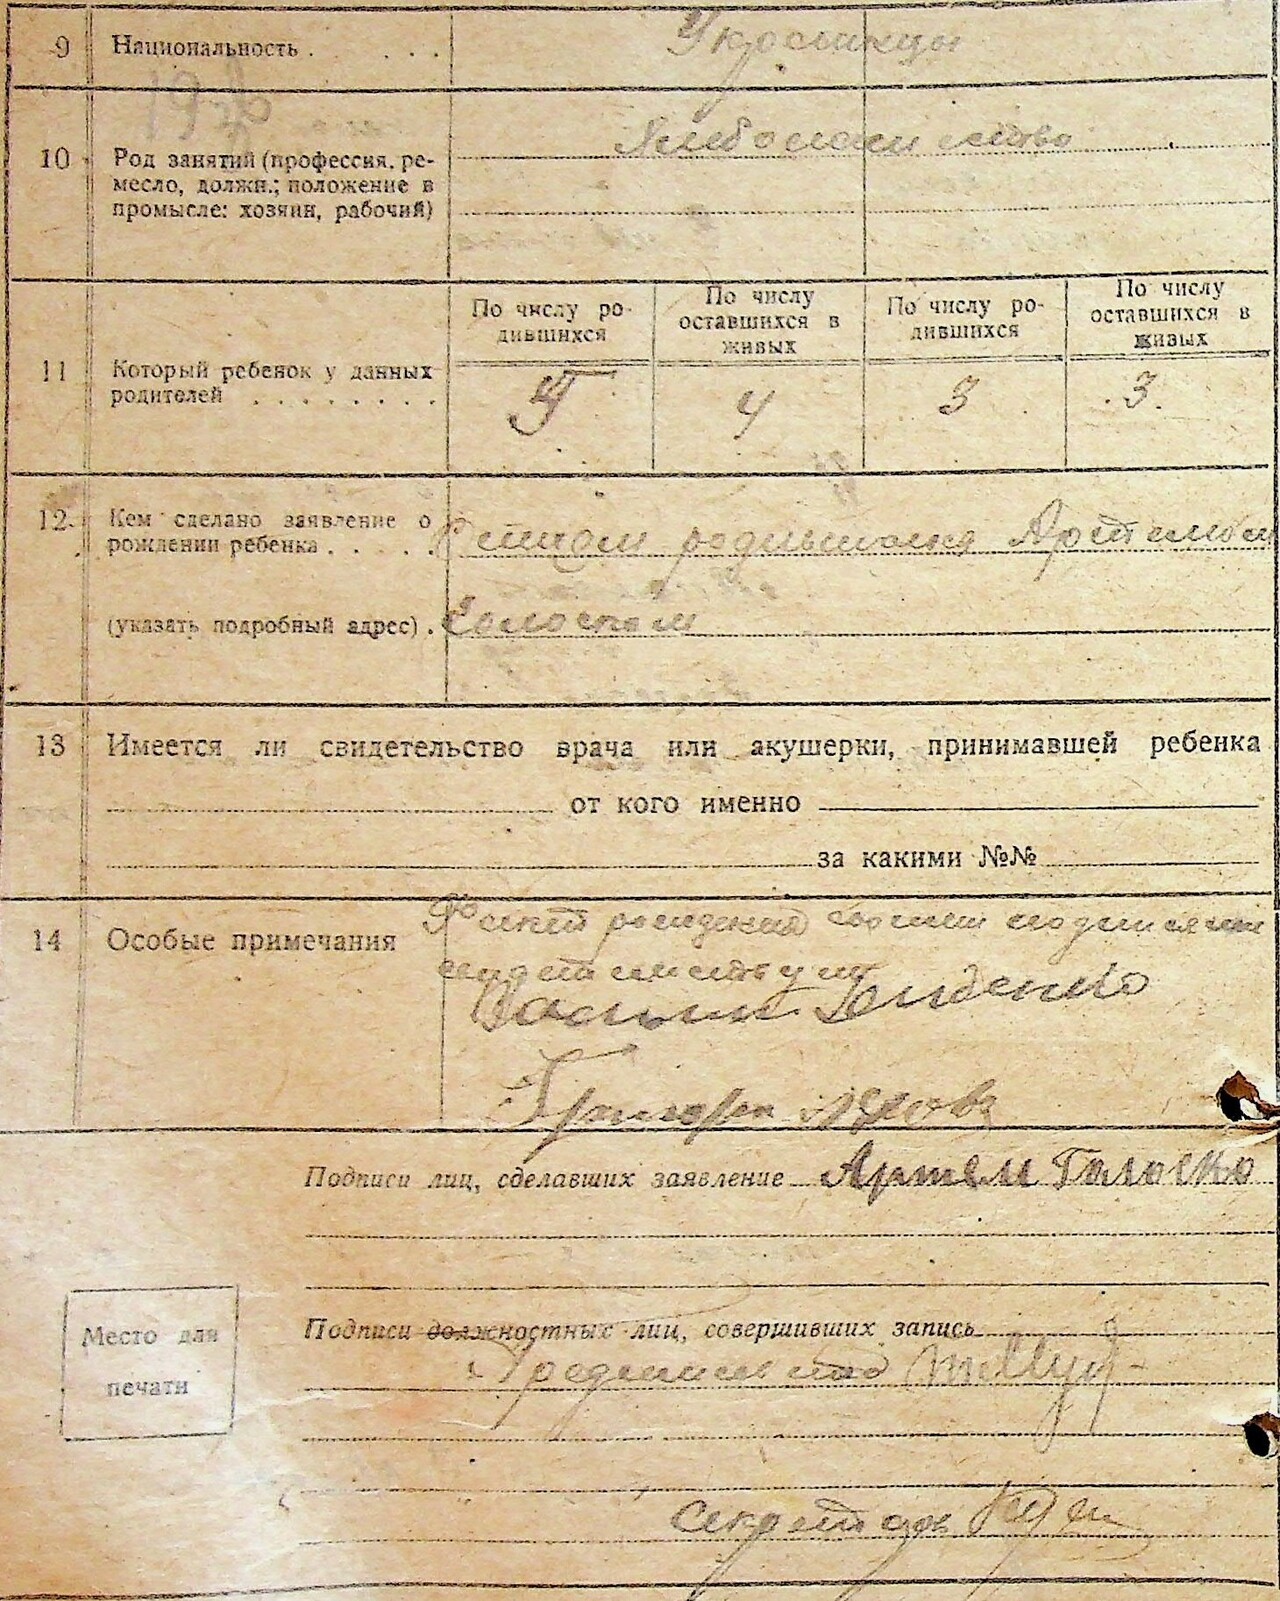 9 Национальность . . . . Украинцы
10 Род занятий (профессия, ре-
месло, должн.; положение в
промысле: хозяин, рабочий)
Хлебопашество
По числу ро-
дившихся
По числу
оставшихся в
живых
По числу ро-
дившихся
По числу
оставшихся в
живых
11 Который ребенок у данных
родителей . . . . . . . .
4 3 3
12. Кем сделано заявление о
рождении ребенка . . . . . Отцом родившаяся Артемом
(указать подробный адрес) .
13 Имеется ли свидетельство врача или акушерки, принимавшей ребенка
от кого именно
за какими №№
14 Особые примечания
Факт рождения своими подписями
Василий
Григорий
Подписи лиц, сделавших заявление Артем Голоско
Подписи должностных лиц, совершивших запись
Место для
печати
Секретарь